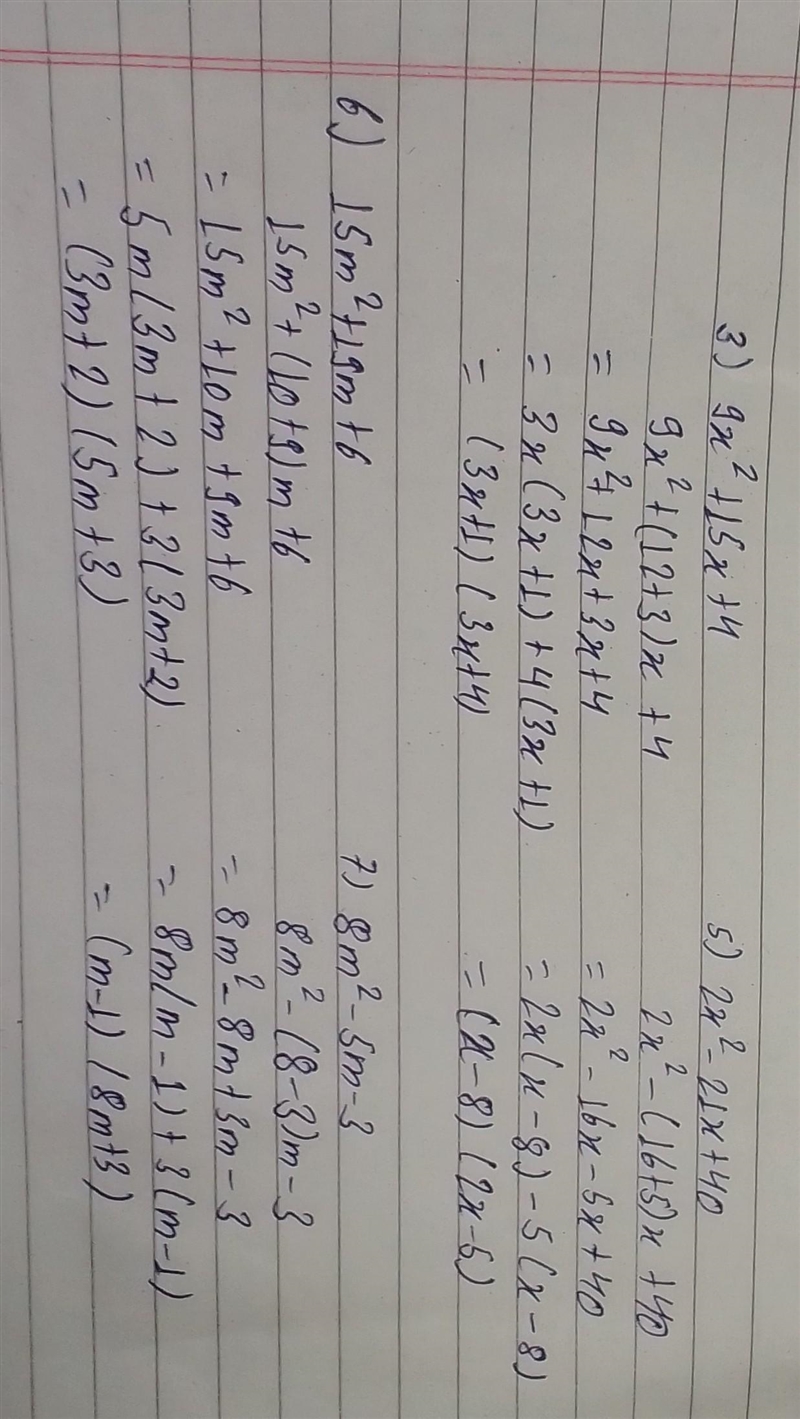 3) 9x²+15x+4
9x²+(12+3)x+4
= 9x²+12x+3x+4
= 3x(3x+1)+4(3x+1)
= (3x+1)(3x+4)
5) 2x²-21x+40
2x²-(16+5)x+40
= 2x²-16x-5x+40
= 2x(x-8)-5(x-8)
= (x-8)(2x-5)
6) 15m²+19m+6
15m²+(10+9)m+6
= 15m²+10m+9m+6
= 5m(3m+2)+3(3m+2)
= (3m+2)(5m+3)
7) 8m²-5m-3
8m²-(8-3)m-3
= 8m²-8m+3m-3
= 8m(m-1)+3(m-1)
= (m-1)(8m+3)